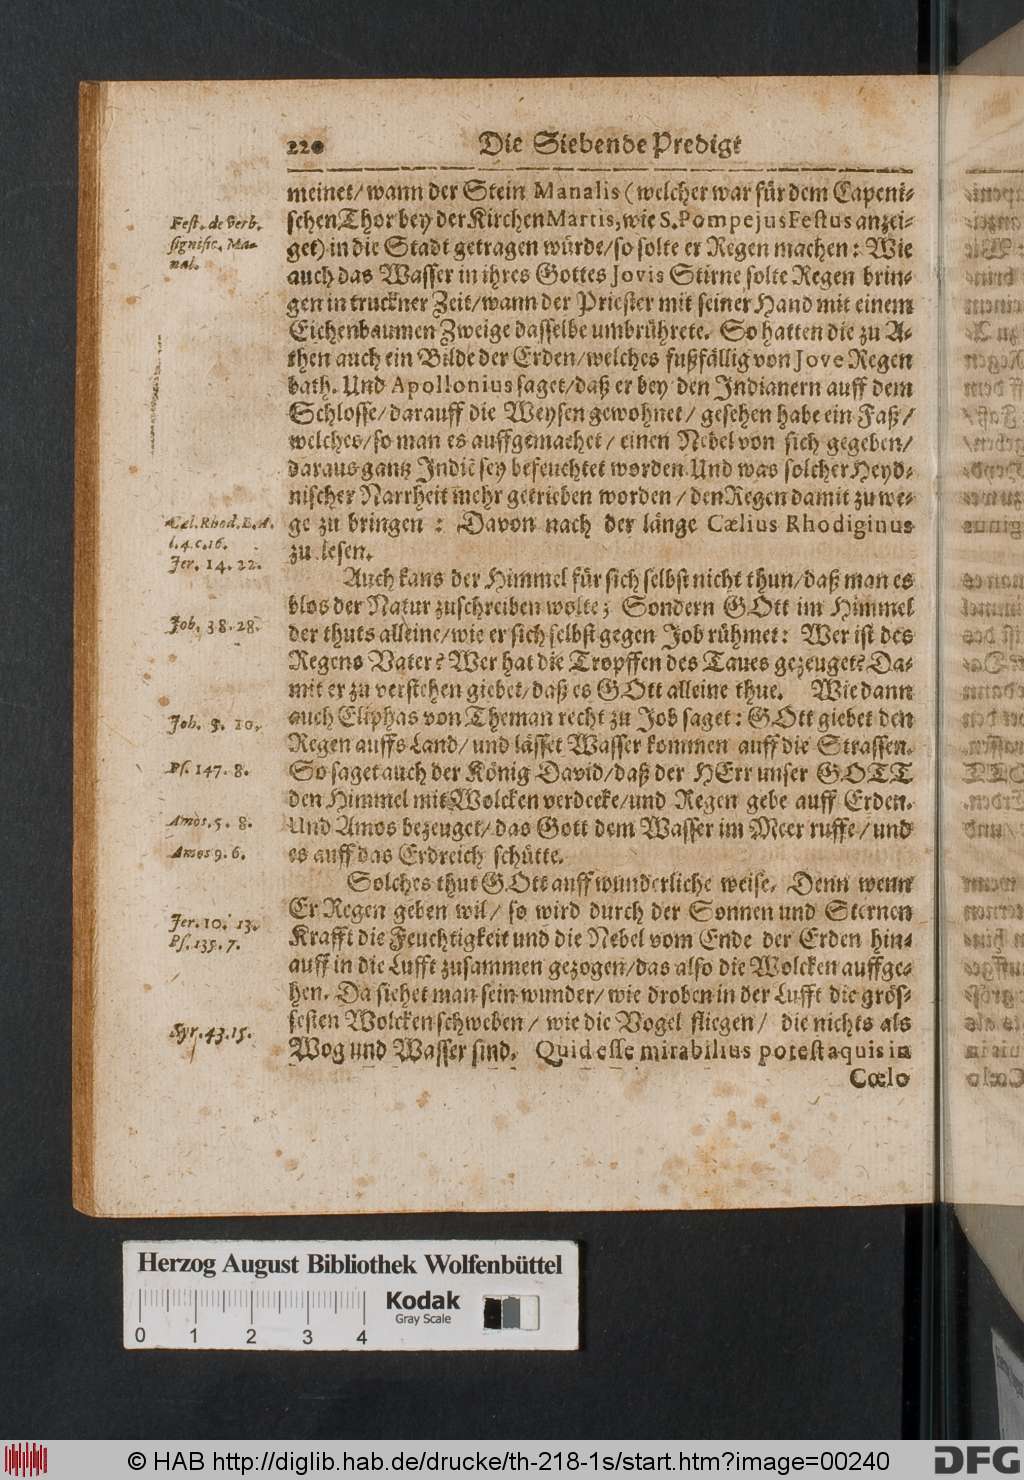 220 Die Siebende Predigt
meinet/ wann der Stein Manalis (welcher war für dem Capeni-
schen Thor bey der Kirchen Martis, wie S. Pompejus Festus anzei-
get) in die Stadt getragen würde/ so solte er Regen machen: Wie
auch das Wasser in ihres Gottes Jovis Stirne solte Regen brin-
gen in truckner Zeit/ wann der Priester mit seiner Hand mit einem
Eichenbaumen Zweige dasselbe umbrührete. So hatten die zu A-
then auch ein Bilde der Erden/ welches fußfällig von Jove Regen
bath. Und Apollonius saget/ daß er bey den Indianern auff dem
Schlosse/ darauff die Weysen gewohnet/ gesehen habe ein Faß/
welches/ so man es auffgemachet/ einen Nebel von sich gegeben/
daraus gantz Indiē sey befeuchtet worden. Und was solcher Heyd-
nischer Narrheit mehr getrieben worden/ den Regen damit zu we-
ge zu bringen: Davon nach der länge Cælius Rhodiginus
zu lesen.
Auch kans der Himmel für sich selbst nicht thun/ daß man es
blos der Natur zuschreiben wolte; Sondern GOtt im Himmel
der thuts alleine/ wie er sich selbst gegen Job rühmet: Wer ist des
Regens Vater? Wer hat die Tropffen des Taues gezeuget? Da-
mit er zu verstehen giebet/ daß es GOtt alleine thue. Wie dann
auch Eliphas von Theman recht zu Job saget: GOtt giebet den
Regen auffs Land/ und lässet Wasser kommen auff die Strassen.
So saget auch der König David/ daß der HErr unser GOTT
den Himmel mit Wolcken verdecke/ und Regen gebe auff Erden.
Und Amos bezeuget/ das Gott dem Wasser im Meer ruffe/ und
es auff das Erdreich schütte.
Solches thut GOtt auff wunderliche weise. Denn wenn
Er Regen geben wil/ so wird durch der Sonnen und Sternen
Krafft die Feuchtigkeit und die Nebel vom Ende der Erden hin-
auff in die Lufft zusammen gezogen/ das also die Wolcken auffge-
hen. Da siehet man sein wunder/ wie droben in der Lufft die grös-
sesten Wolcken schweben/ wie die Vogel fliegen/ die nichts als
Wog und Wasser sind. Quid esse mirabilius potest aquis in
Cœlo
Fest. de Verb.
signific. Ma-
nal.
Cæl. Rhod. L. A.
l. 4. c. 16.
Jer. 14. 22.
Job. 38. 28.
Job. 5. 10.
Ps. 147. 8.
Amos. 5. 8.
Amos 9. 6.
Jer. 10. 13.
Ps. 135. 7.
Syr. 43. 15.
Herzog August Bibliothek Wolfenbüttel
0 1 2 3 4
Kodak
Gray Scale
© HAB http://diglib.hab.de/drucke/th-218-1s/start.htm?image=00240
DFG